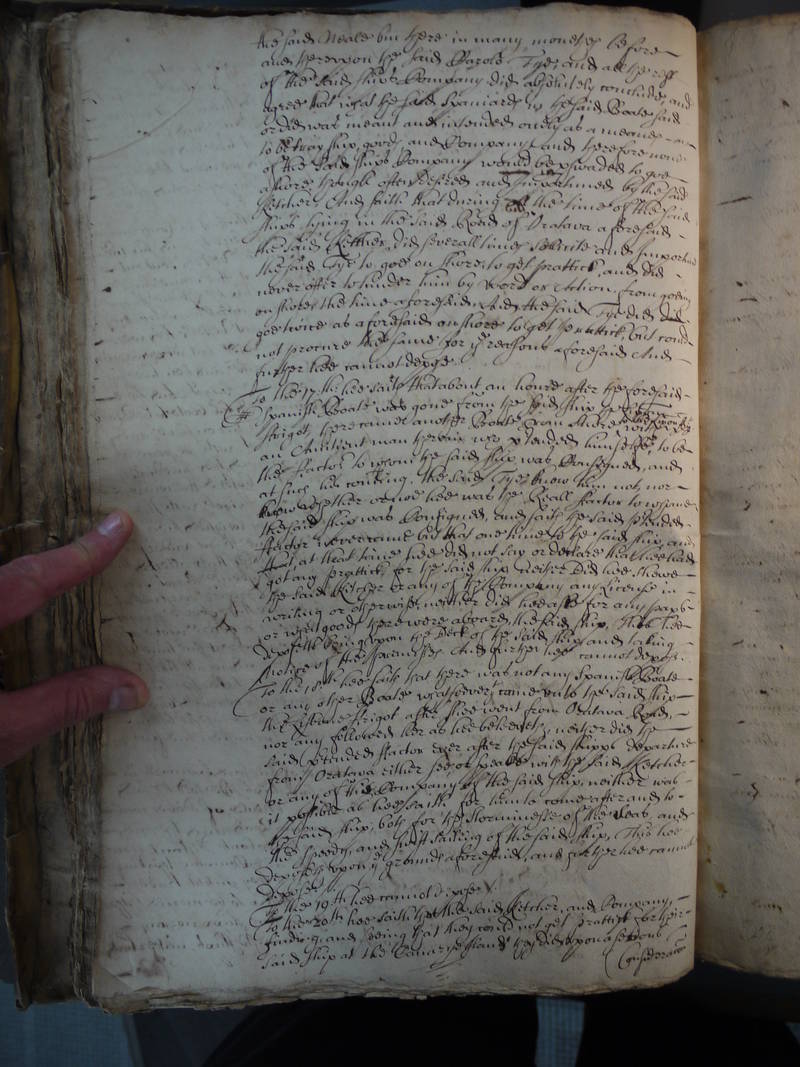 the said Neale but there in many monethes before
and thereupon the said Harold Tye and all the rest
of the said shipps Company did absolutely conclude, and
agree that what the said Spaniards in the said Boate said
or did was meant and intended onely as a meanes
to betray ship, goods and Company, and therefore none
of the said shipps Company would be p[er]swaded to goe
ashore though often desired and importuned by the said
Ketcher And saith that during the time of the said
ships lying in the said Road of Oratava aforesaid
the said Ketcher did severall times and importune
the said Tye to goe on shore to get prattick, and did
never offer to hinder him by Word or Action, from going
on shore the time aforesaid. And the said Tye did
goe twice as aforesaid on shore to get prattick, but could
not procure the same for y[e] reasons aforesaid And
further hee cannot depose.
To the 17th hee saith that about an houre after the foresaid
Spanish Boate was gone from the said ship the
ffrigot, there came another Boate from shore with
an Antient man therein who p[re]tended himselfe to be
the ffactor to whom the said ship was Consigned, and
at such his coming the said Tye knew him not, nor
knew whether or noe hee was the Reall ffactor to whome
the said ship was Consigned, and saith the said p[re]tended
ffactor never came but that one time to the said ship, and
that at that time hee did not say or declare that hee had
got any prattick for the said ship Neither did hee shewe
the said Ketcher or any of the Company any License in
writing or otherwise, neither did hee aske for any
or what goods there were aboard the said ship, This hee
deposeth being upon the Deck of the said ship and taking
notice of the And further hee cannot depose.
To the 18th hee saith that there was not any Spanish Boate
or any other Boate whatsoever came unto the said ship
the ffrigot after shee went from Oratava Road,
nor any followed her as hee beleeveth, neither did the
said p[re]tended ffactor ever after the said shipps departure
from Oratava either see or speake with the said Ketcher
or any of the Company of the said ship, neither was
it possible as hee saith for him to come after and to
the said ship, both for the storminesse of the Seas, and
the speedy and swift sailing of the said ship, This hee
deposeth upon y[e] grounds aforesaid, and further hee cannot
depose.
To the 19th hee cannot depose.
To the 20th hee saith that the said Ketcher and Company,
finding and seeing that they could not get prattick for their
said ship at the Canary Islands they did upon a serious
Consideracon